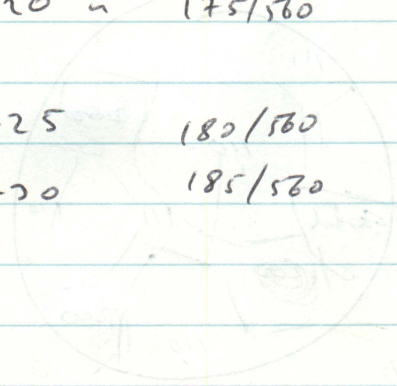 20 " 175/560
-25 180/560
-30 185/560